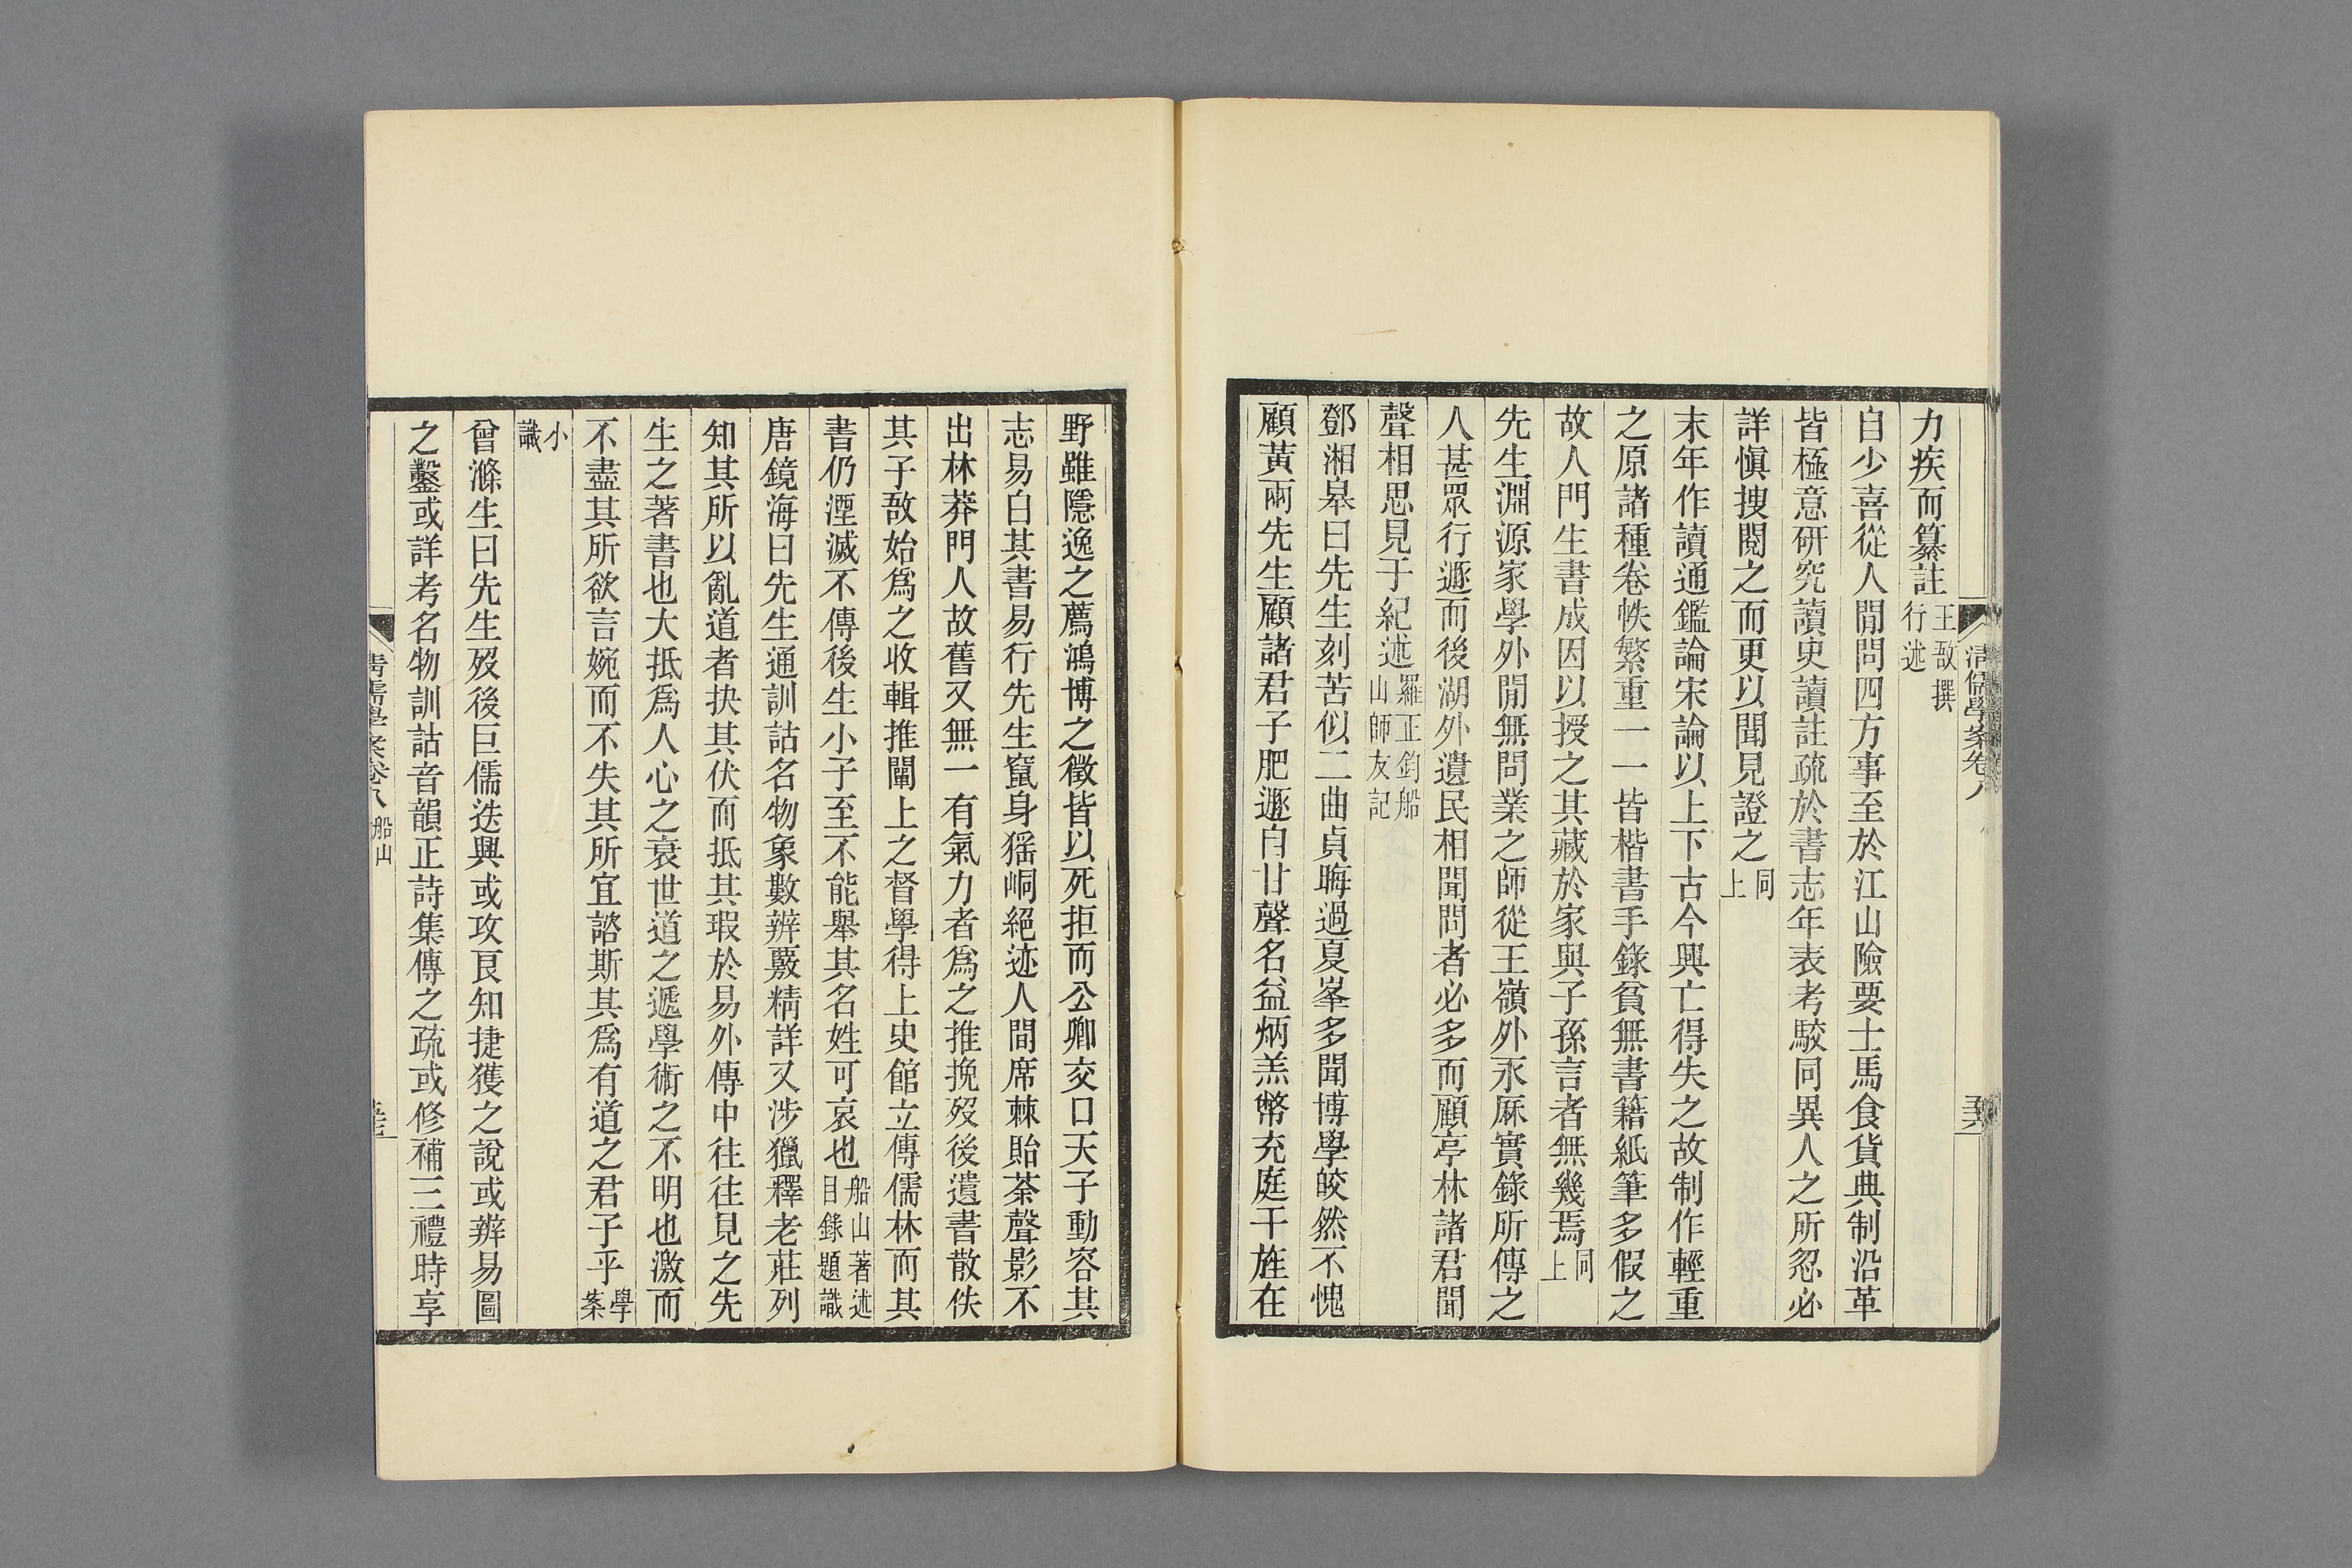 清儒學案卷八
力疾而纂註王敔撰行述
自少喜從人閒問四方事至於江山險要士馬食貨典制沿革
皆極意研究讀史讀註疏於書志年表考駮同異人之所忽必
詳愼搜閱之而更以聞見證之同上
末年作讀通鑑論宋論以上下古今興亡得失之故制作輕重
之原諸種卷帙繁重一一皆楷書手錄貧無書籍紙筆多假之
故人門生書成因以授之其藏於家與子孫言者無幾焉同上
先生淵源家學外閒無問業之師從王嶺外永厤實錄所傳之
人甚眾行遯而後湖外遺民相聞問者必多而顧亭林諸君聞
聲相思見于紀述羅正鈞船山師友記
鄧湘皋曰先生刻苦似二曲貞晦過夏峯多聞博學皎然不愧
顧黃兩先生顧諸君子肥遯自甘聲名益炳羔幣充庭干旌在
野雖隱逸之薦鴻博之徵皆以死拒而公卿交口天子動容其
志易白其書易行先生竄身猺峒絕迹人間席棘貽荼聲影不
出林莽門人故舊又無一有氣力者為之推挽歿後遺書散佚
其子敔始為之收輯推闡上之督學得上史館立傳儒林而其
書仍湮滅不傳後生小子至不能舉其名姓可哀也船山著述目錄題識
唐鏡海曰先生通訓詁名物象數辨覈精詳又涉獵釋老莊列
知其所以亂道者抉其伏而抵其瑕於易外傳中往往見之先
生之著書也大抵為人心之衰世道之遞學術之不明也激而
不盡其所欲言婉而不失其所宜諮斯其為有道之君子乎學案
小識
曾滌生曰先生歿後巨儒迭興或攻良知捷獲之說或辨易圖
之鑿或詳考名物訓詁音韻正詩集傳之疏或修補三禮時享
清儒學案卷八 船山